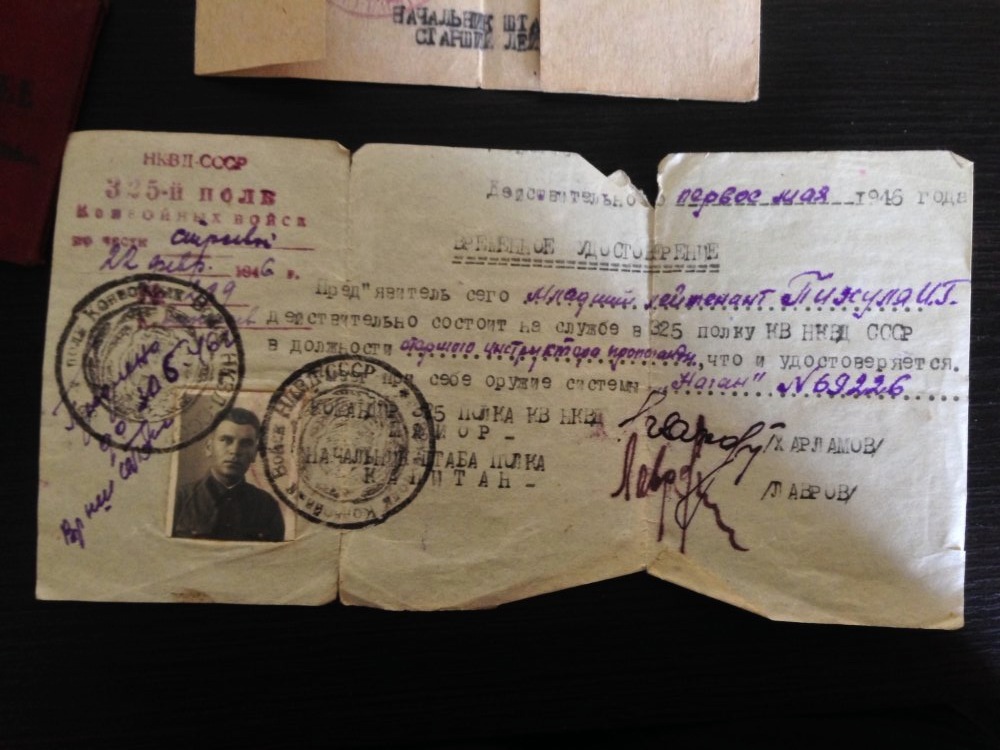 НАЧАЛЬНИК ШТА
СТАРШИЙ ЛЕЙ
НКВД-СССР
325-й ПОЛК
Конвойных войск
по части строевой
22 февр. 1946 г.
Действительно по первое мая 1946 года
ВРЕМЕННОЕ УДОСТОВЕРЕНИЕ
Пред"явитель сего младший лейтенант Пижула И.Г.
действительно состоит на службе в 325 полку КВ НКВД СССР
в должности старшего инструктора пропаганды, что и удостоверяется.
при себе оружие системы "Наган" №69226
КОМАНДИР 325 ПОЛКА КВ НКВД
МАЙОР - /ХАРЛАМОВ/
НАЧАЛЬНИК ШТАБА ПОЛКА
КАПИТАН - /ЛАВРОВ/